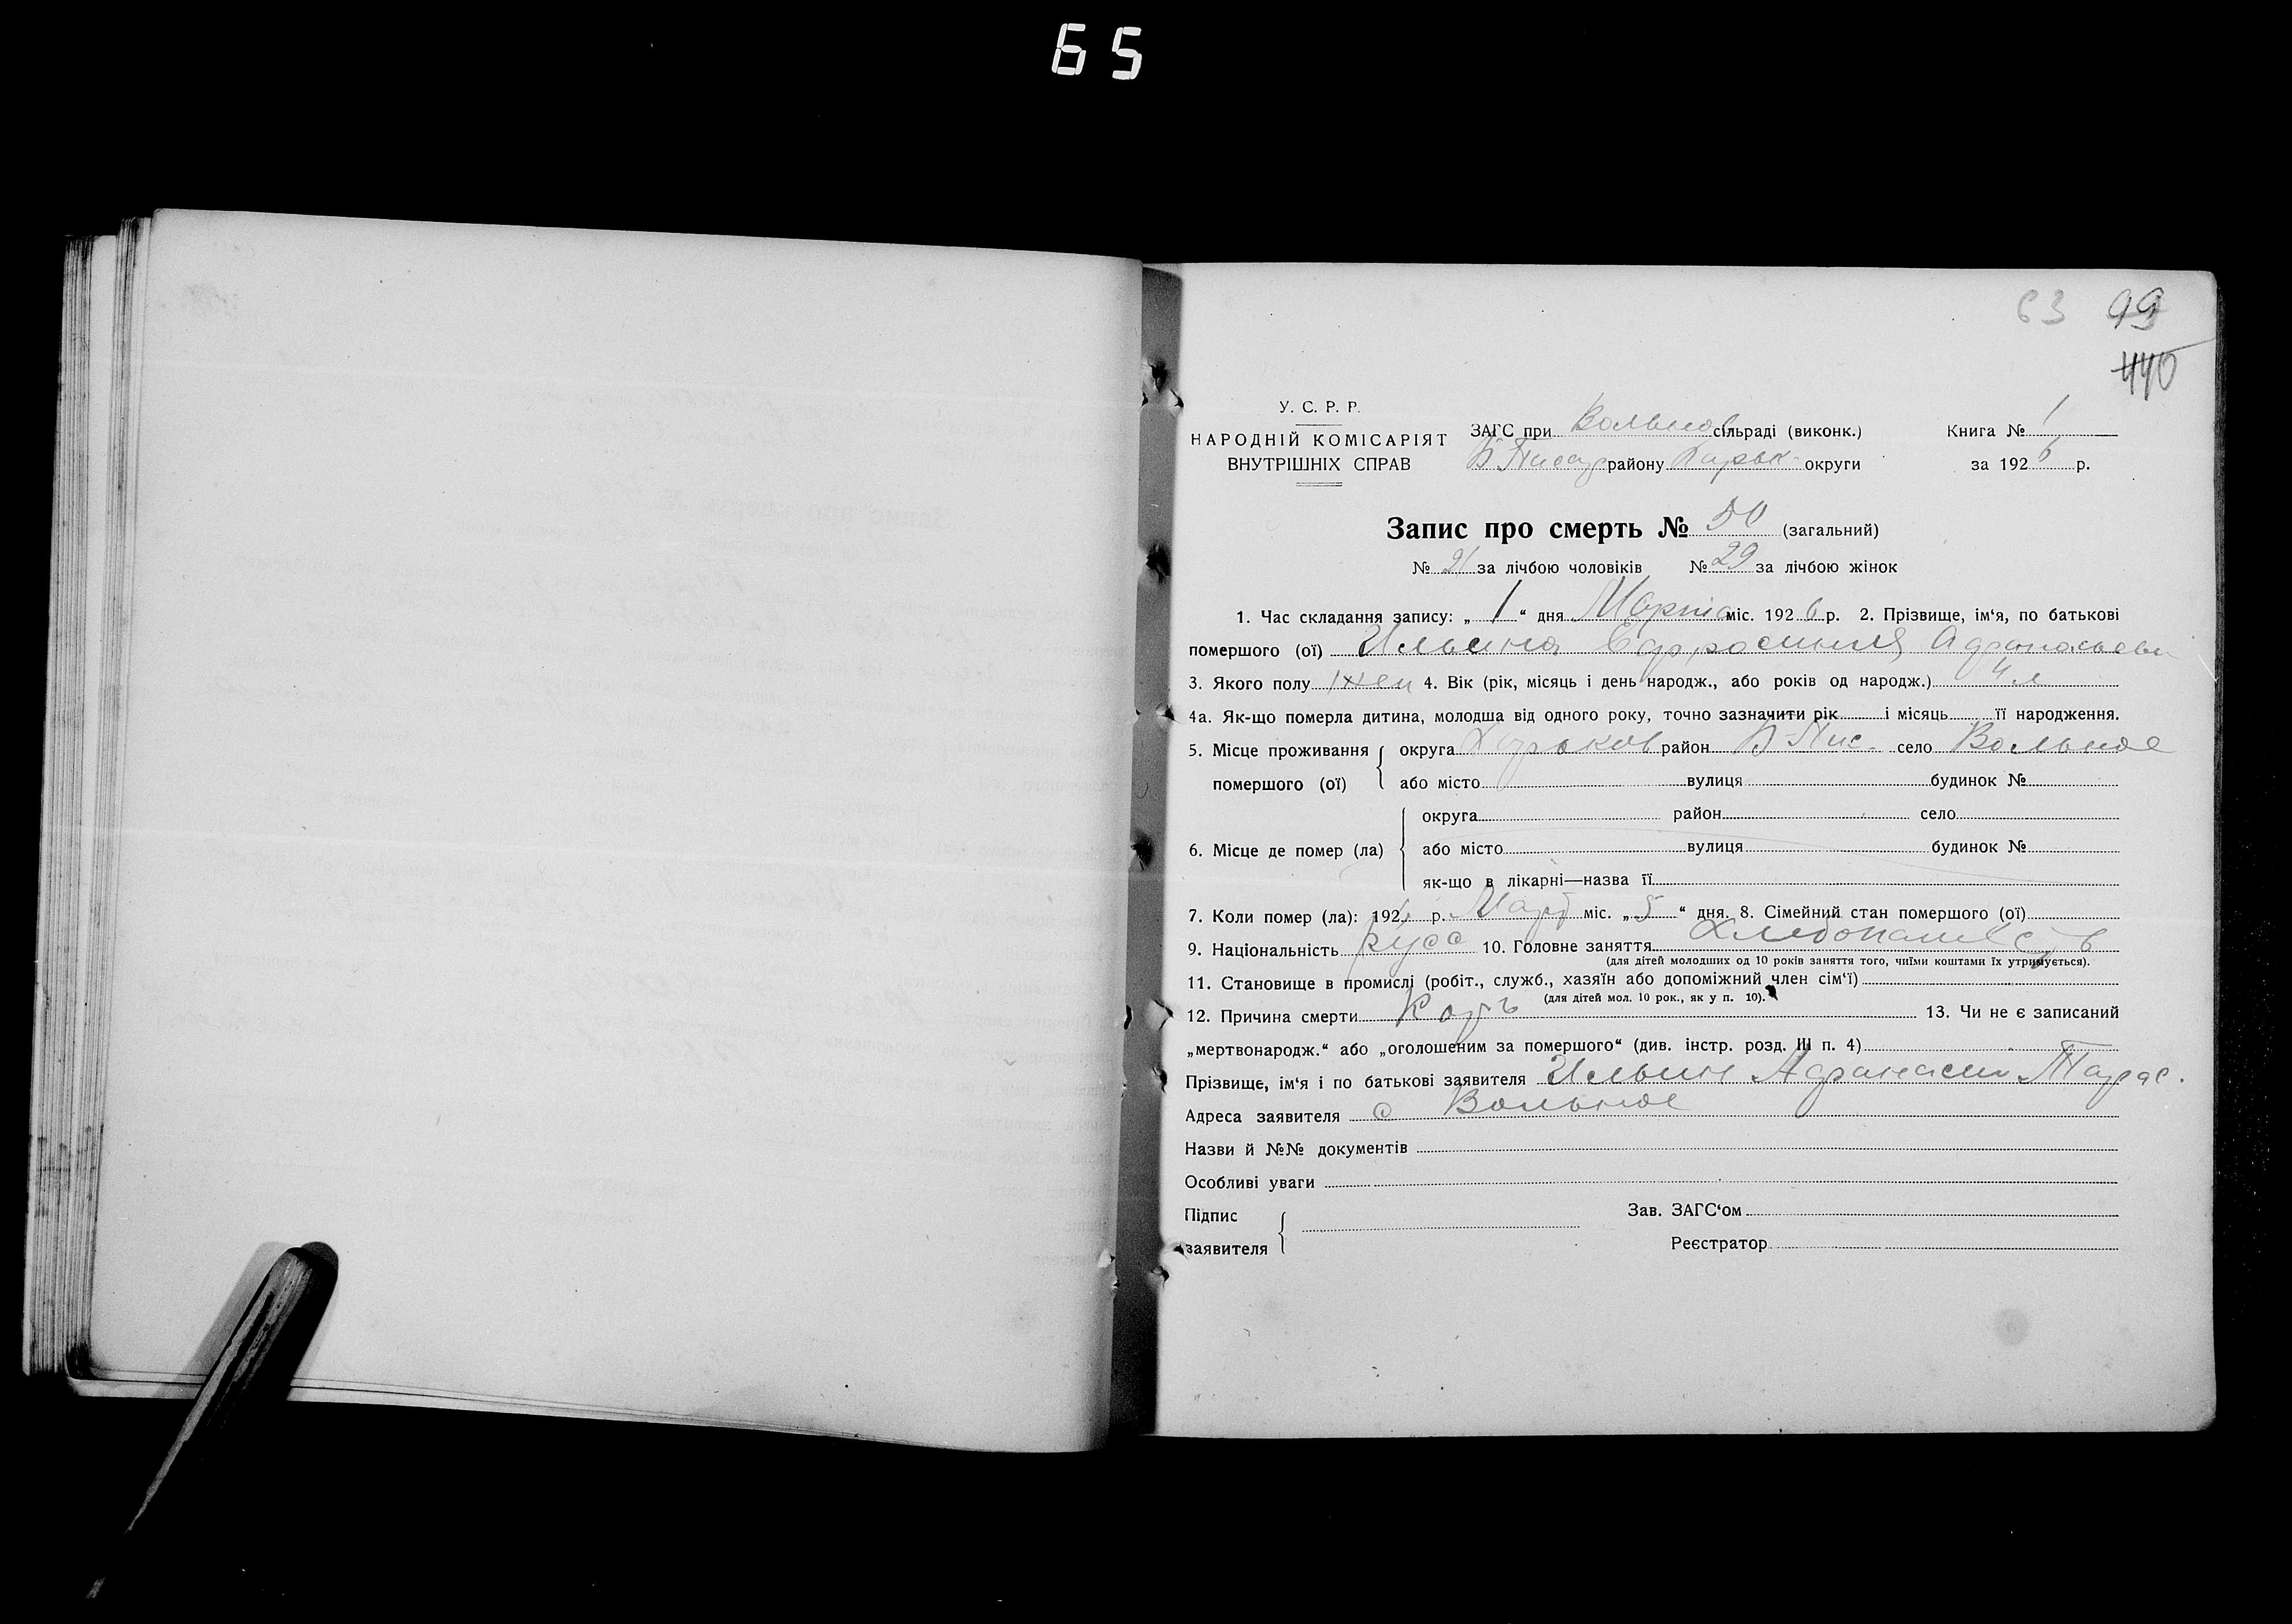 65
63 99
440
У. С. Р. Р.
НАРОДНІЙ КОМІСАРІЯТ
ВНУТРІШНІХ СПРАВ
ЗАГС при Вольнов сільраді (виконк.)
Б Писар району Харьк. округи
Книга № 1
за 1926 р.
Запис про смерть № 50 (загальний)
№ 21 за лічбою чоловіків № 29 за лічбою жінок
1. Час складання запису: „ 1 “ дня Марта міс. 1926 р. 2. Прізвище, ім‘я, по батькові
помершого (ої) Ильина Ефросиния Афанасьевн
3. Якого полу жен 4. Вік (рік, місяць і день народж., або років од народж.) 4 л
4а. Як-що померла дитина, молодша від одного року, точно зазначити рік і місяць її народження.
5. Місце проживання помершого (ої) округа Харьков район Б-Пис. село Вольное
або місто вулиця будинок №
6. Місце де помер (ла) округа район село
або місто вулиця будинок №
як-що в лікарні—назва її
7. Коли помер (ла): 192 р. Март міс. „ 5 “ дня. 8. Сімейний стан помершого (ої)
9. Національність русс 10. Головне заняття Хлебопашеств
(для дітей молодших од 10 років заняття того, чиїми коштами їх утримується).
11. Становище в промислі (робіт., служб., хазяїн або допоміжний член сім‘ї)
(для дітей мол. 10 рок., як у п. 10).
12. Причина смерти Корь 13. Чи не є записаний
„мертвонародж.“ або „оголошеним за помершого“ (див. інстр. розд. III п. 4)
Прізвище, ім‘я і по батькові заявителя Ильин Афанасий Тарас.
Адреса заявителя с Вольное
Назви й №№ документів
Особливі уваги
Підпис заявителя
Зав. ЗАГС‘ом
Реєстратор